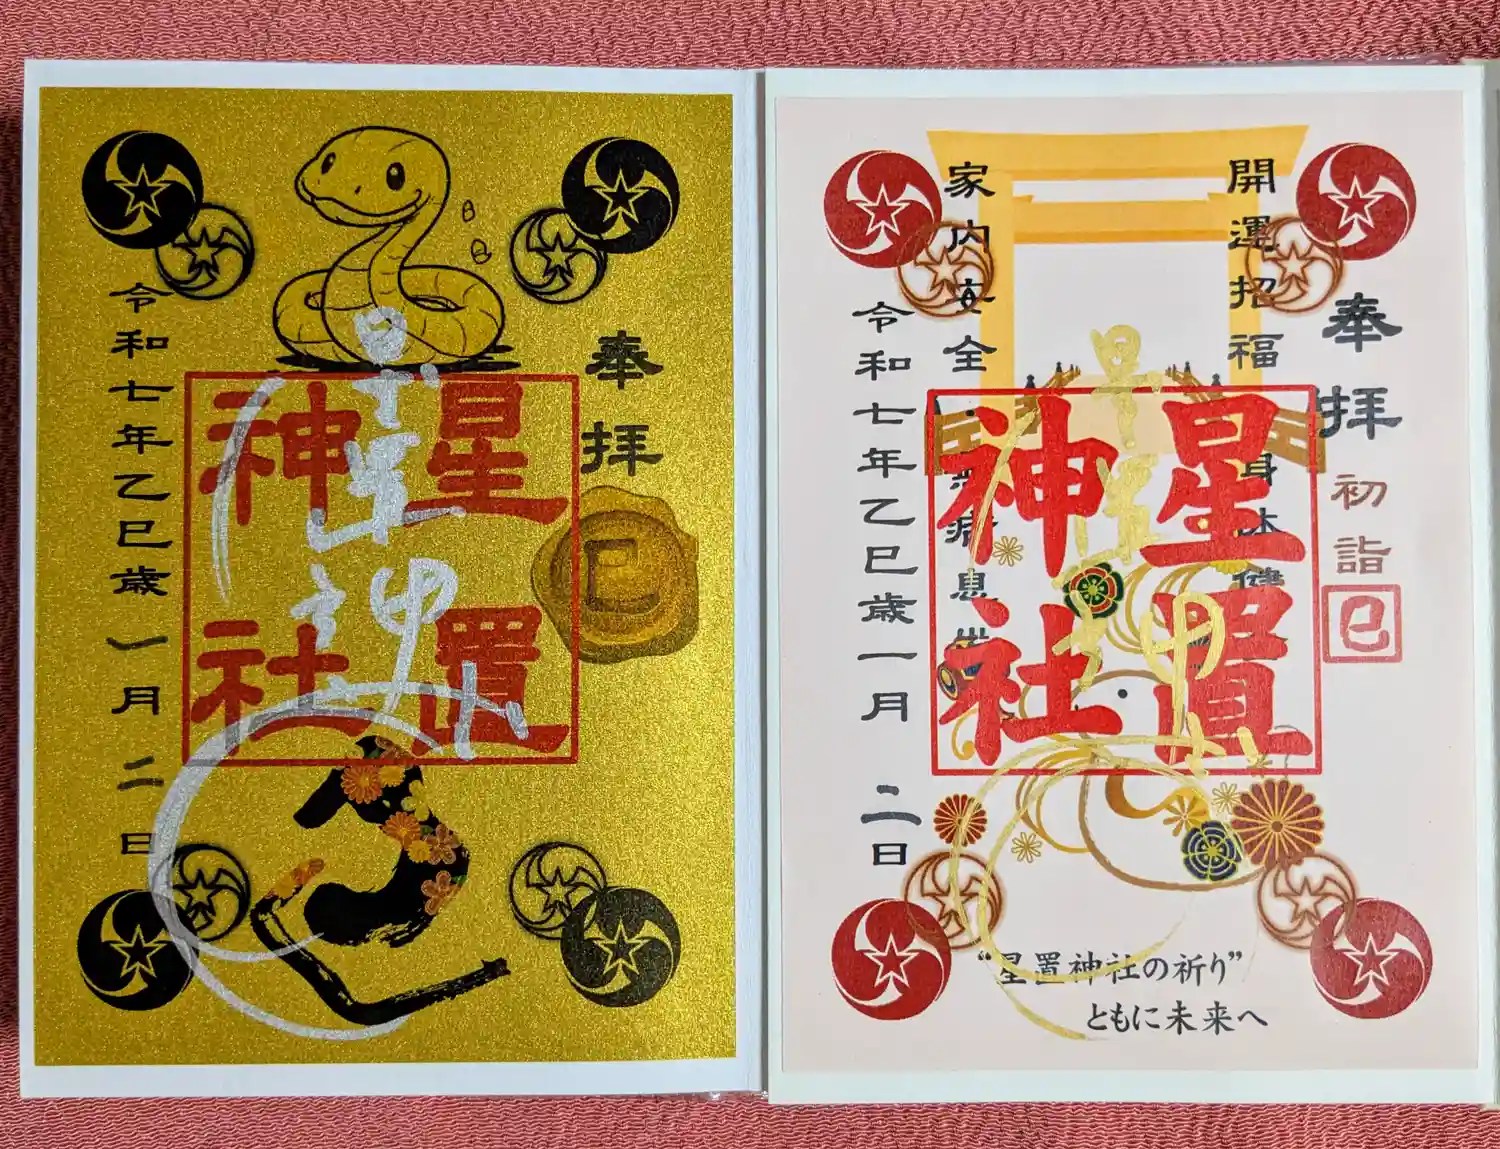 奉拝
星置神社
令和七年乙巳歳一月二日
巳
奉拝
初詣
巳
開運招福
身体健
家内安全・
病息
星置神社
令和七年乙巳歳一月二日
“星置神社の祈り”
ともに未来へ